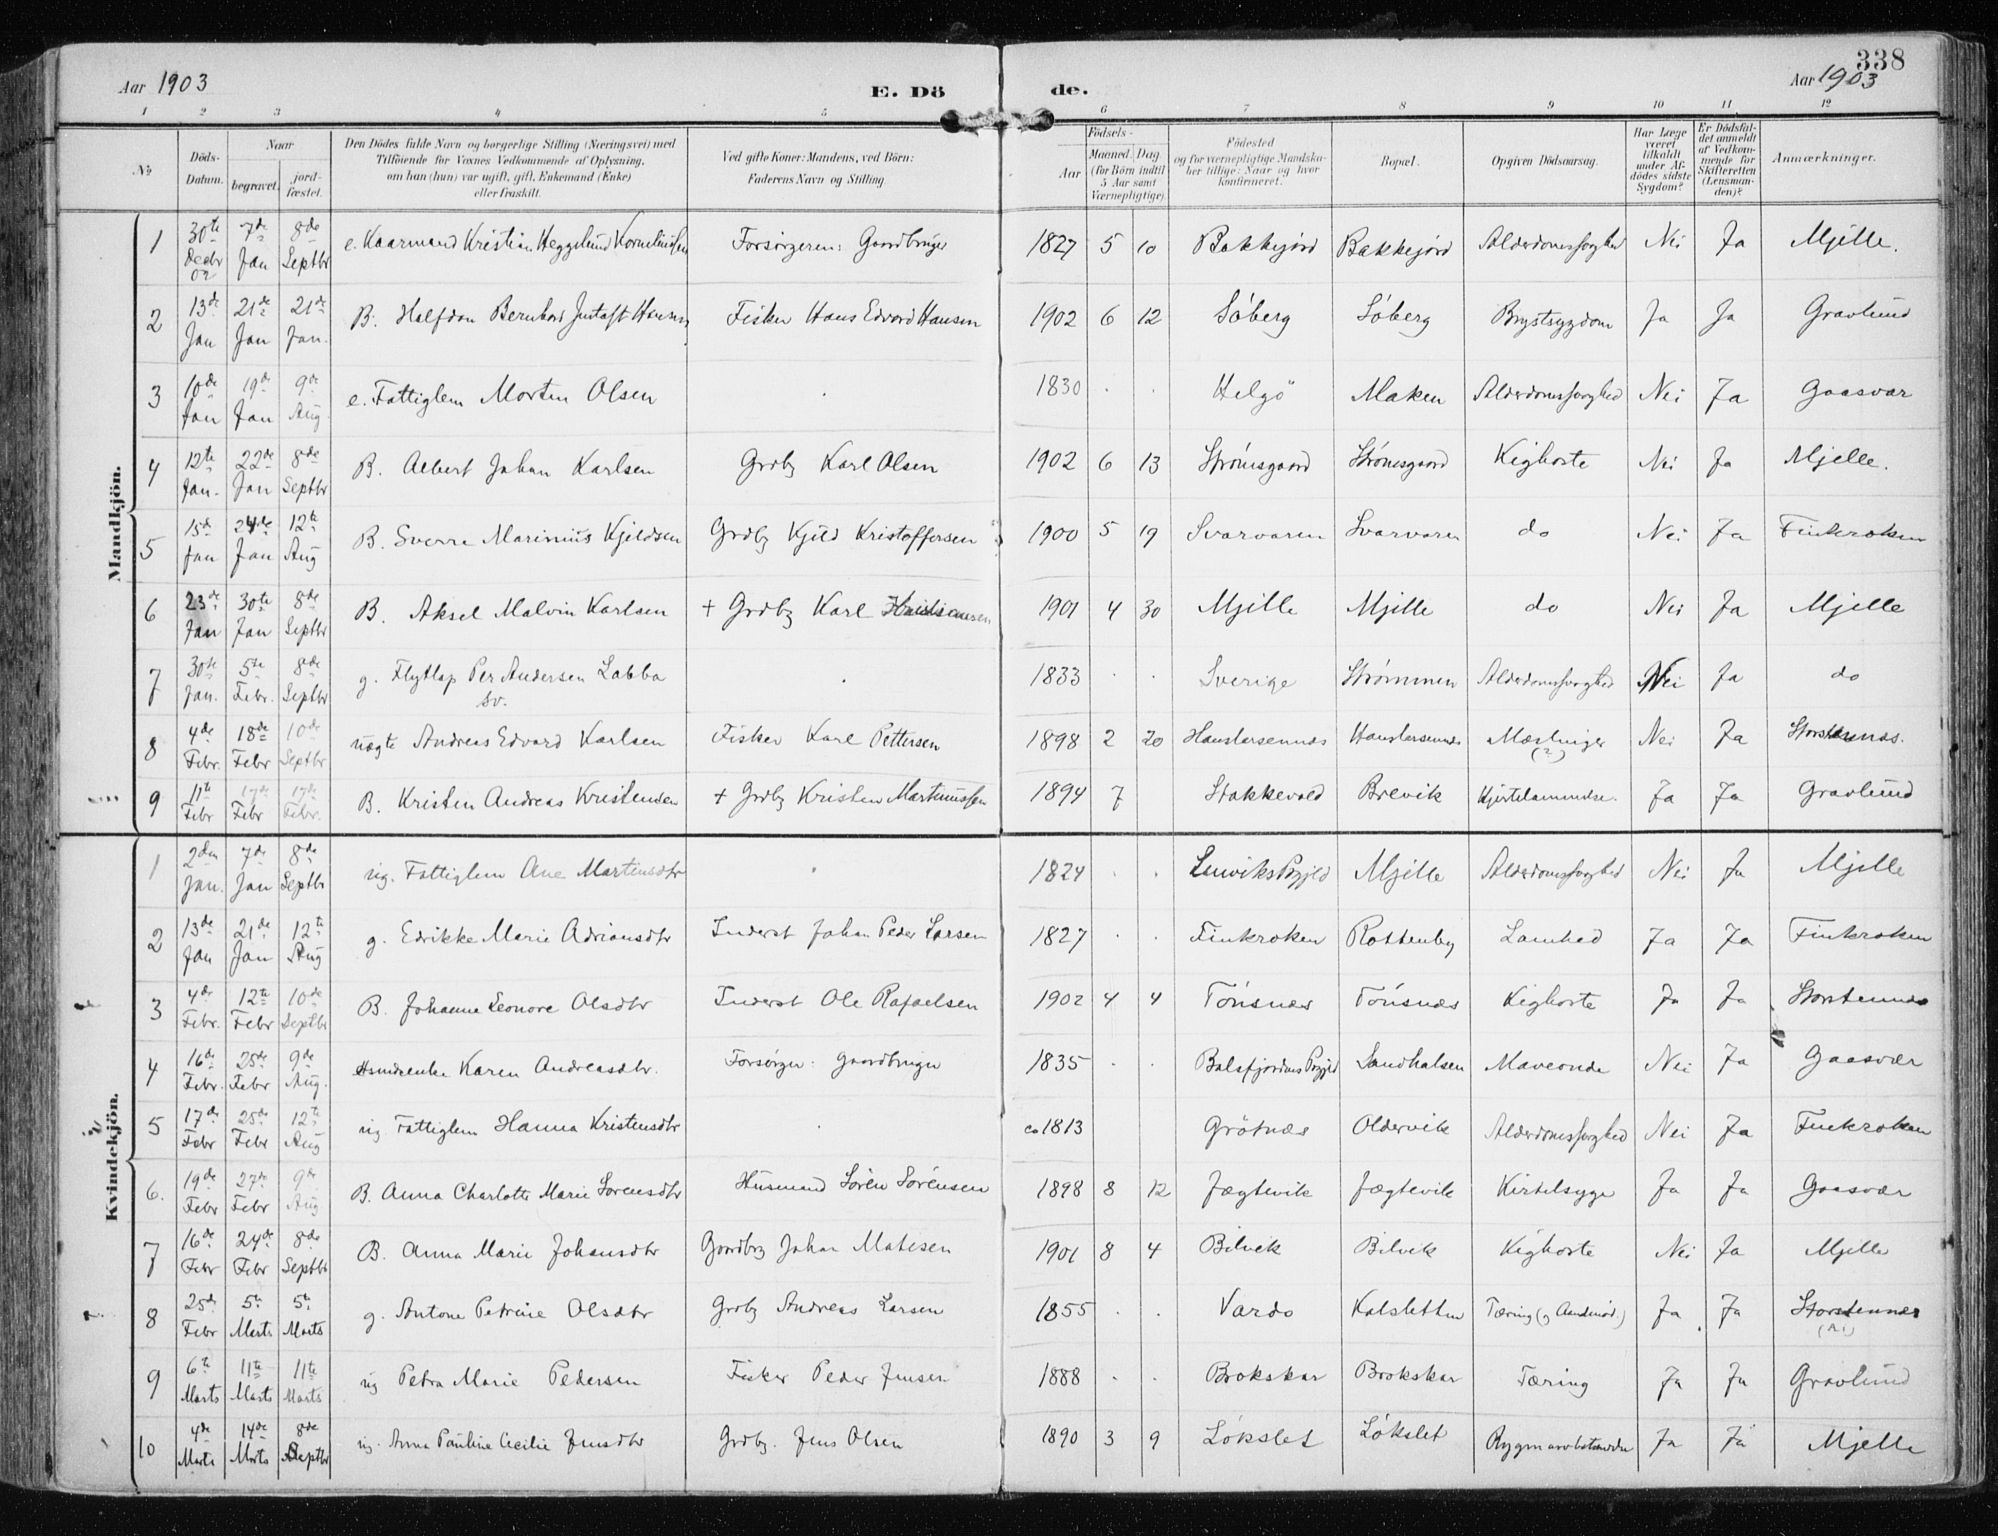 338
Aar 1903 E. Dö de. Aar 1903
1 2 3 4 5 6 7 8 9 10 11 12
№ Döds-Datum. Naar begravet. jord-fæstet. Den Dödes fulde Navn og borgerlige Stilling (Næringsvei) med Tilföiende for Voxnes Vedkommende af Oplysning, om han (hun) var ugift, gift, Enkemand (Enke) eller fraskilt. Ved gifte Koner: Mandens, ved Börn: Faderens Navn og Stilling Födsels- Aar Maaned. Dag. (for Börn indtil 5 Aar samt Værnepligtige). Födested og for værnepligtige Mandskaber tillige: Naar og hvor konfirmeret. Bopæl. Opgiven Dödsaarsag. Har Læge været tilkaldt under Afdödes sidste Sygdom? Er Dödsfaldet anmeldt af Vedkommende for Skifteretten (Lensmanden)? Anmærkninger.
Mandkjön.
1 30te Decbr 02 7de Jan 8de Septbr e. Kaarmand Kristian Heggelund Korneliussen Forsørgeren: Gaardbruger 1827 5 10 Bakkejord Bakkejord Alderdomssvaghed Nei Ja Mjelle.
2 13de Jan 21de Jan 21de Jan. B. Halfdan Bernhard Justaft Hansen Fisker Hans Edvard Hansen 1902 6 12 Søberg Søberg Brystsygdom Ja Ja Gravlund
3 10de Jan 19de Jan 9de Aug. e. Fattiglem Morten Olsen . 1830 . . Helgö Maken Alderdomssvaghed Nei Ja Gaasvær
4 12te Jan. 22de Jan 8de Septbr B. Albert Johan Karlsen Grdbg Karl Olsen 1902 6 13 Strømsgaard Strømsgaard Kighoste Nei Ja Mjelle.
5 15de Jan 24de Jan 12te Aug B. Sverre Marinius Kjeldsen Grdbg Kjeld Kristoffersen 1900 5 19 Svarvaren Svarvaren do Nei Ja Finkroken
6 23de Jan 30te Jan 8de Septbr B. Aksel Malvin Karlsen + Grdbg Karl Kristiansen 1901 4 30 Mjelle Mjelle do Nei Ja Mjelle
7 30te Jan. 5te Febr. 8de Septbr g. Flytlap Per Andersen Labba sv. . 1833 . . Sverige Strømmen Alderdomssvaghed Nei Ja do
8 4de Febr. 18de Febr 10de Septbr uægte Andreas Edvard Karlsen Fisker Karl Pettersen 1898 2 20 Hanslarsennæs Hanslarsennæs Mæslinger (?) Nei Ja Storstennæs.
9 11te Febr 17de Febr 17de Febr. B. Kristen Andreas Kristensen + Grdbg Kristen Martinussen 1894 7 Stakkevold Brevik Hjertelammelse. Ja Ja Gravlund
Kvindekjön.
1 2den Jan. 7de Jan 8de Septbr ug. Fattiglem Ane Martinsdtr . 1824 . . Lenviks Prgjld Mjelle Alderdomssvaghed Nei Ja Mjelle
2 13de Jan 21de Jan 12te Aug g. Edrikke Marie Adriansdtr Inderst Johan Peder Larsen 1827 . . Finkroken Rottenby Lamhed Ja Ja Finkroken
3 4de Febr. 12te Febr 10de Septbr B. Johanne Leonore Olsdtr Inderst Ole Rafaelsen 1902 4 4 Tønsnæs Tønsnæs Kighoste Ja Ja Storstennæs
4 16de Febr. 25de Febr 9de Aug. Karen Andreasdtr. Forsørger: Gaardbruger 1835 . . Balsfjordens Prgjld Sandhalsen Maveonde Nei Ja Gaasvær
5 17de Febr 25de Febr 12te Aug ug. Fattiglem Hanna Kristensdtr . ca 1813 Grötnæs Oldervik Alderdomssvaghed Nei Ja Finkroken
6. 19de Febr 27de Febr 9de Aug B. Anna Charlotte Marie Sørensdtr Husmand Søren Sørensen 1898 8 12 Jægtevik Jægtevik Kirtelsyge Ja Ja Gaasvær
7 16de Febr 24de Febr 8de Septbr B. Anna Marie Johansdtr Gaardbrg Johan Matisen 1901 8 4 Bilvik Bilvik Kighoste Nei Ja Mjelle
8 25de Febr 5te Marts 5te Marts g. Antone Petrine Olsdtr Grdbg Andreas Larsen 1855 . . Vardø Kalsletten Tæring (g Aandnød.) Ja Ja Storstennæs
9 6te Marts 11te Marts 11te Marts ug Petra Marie Pedersen Fisker Peder Jensen 1888 . . Brokskar Brokskar Tæring Ja Ja Gravlund
10 4de Marts 14de Marts 8de Septbr ug. Anna Pauline Cecilie Jensdtr Grdbg. Jens Olsen 1890 3 9 Løkslet Løkslet Ja Ja Mjelle